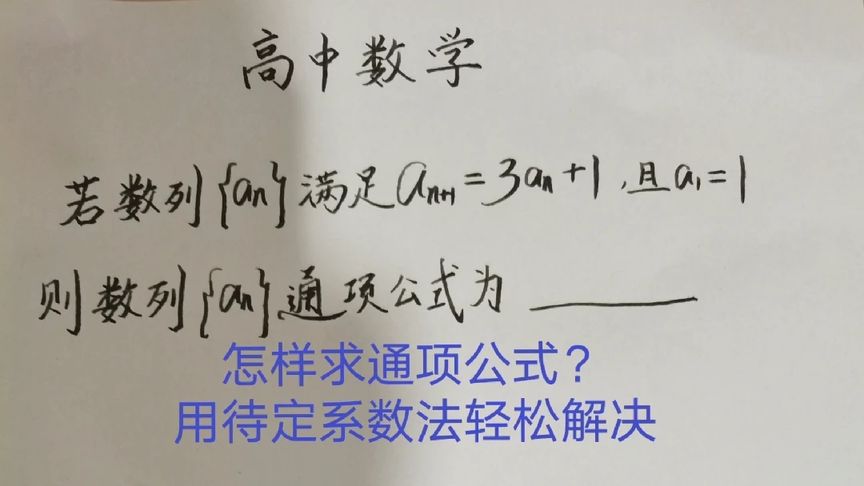 高中数学
若数列{an}满足an+1=3an+1,且a1=1
则数列{an}通项公式为
怎样求通项公式？
用待定系数法轻松解决